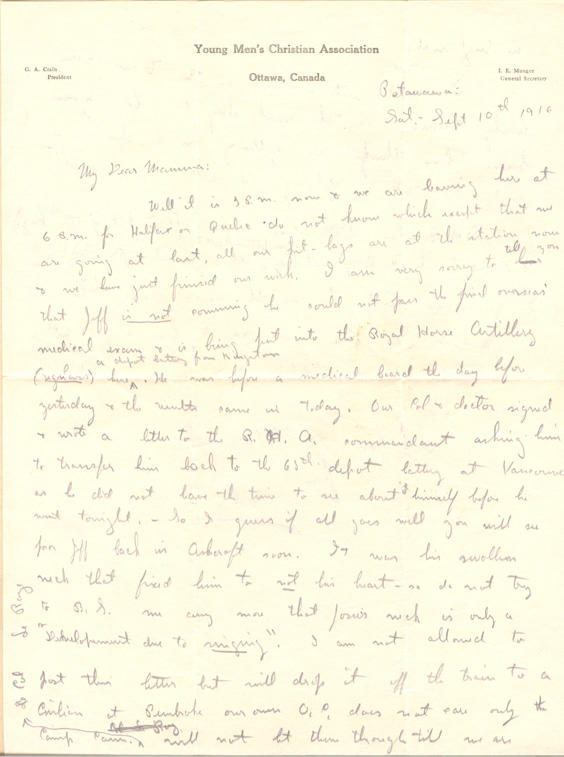 Young Men's Christian Association
G. A. Crain
President
Ottawa, Canada
General Secretary
Petawawa:
Sat. - Sept 10th 1916
My Dear Mamma:
Well it is 3 a.m. now & we are leaving here at
6 a.m. for Halifax or Quebec do not know which except that we
are going at last, all our kit-bags are at the station now
& we have just finished our work. I am very sorry to tell you
that Jeff is not comming he could not pass the final overseas
medical exam & is being put into the Royal Horse Artillery
a depot battery from Kingston
(regulars) here. He was before a medical board the day before
yesterday & the results came in today. Our Col & doctor signed
& wrote a letter to the R. H. A. commandant asking him
to transfer him back to the 68th depot battery at Vancouver
as he did not have the time to see about it himself before he
went tonight. - So I guess if all goes well you will see
poor Jeff back in Ashcroft soon. It was his swollen
neck that fixed him & not his heart - so do not try
to B. S. me any more that neck is only a
"Development due to singing". I am not allowed to
post this letter but will drop it off the train to a
Civilian at Pembroke our own O.C. does not care only the
Camp will not let them through till we are